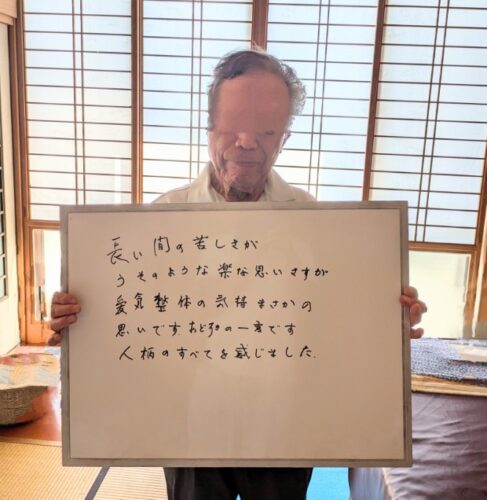 長い間の苦しさが
うそのような楽な思いですが
愛気整体の気持まさかの
思いです。おどろの一言です
人柄のすべてを感じました.